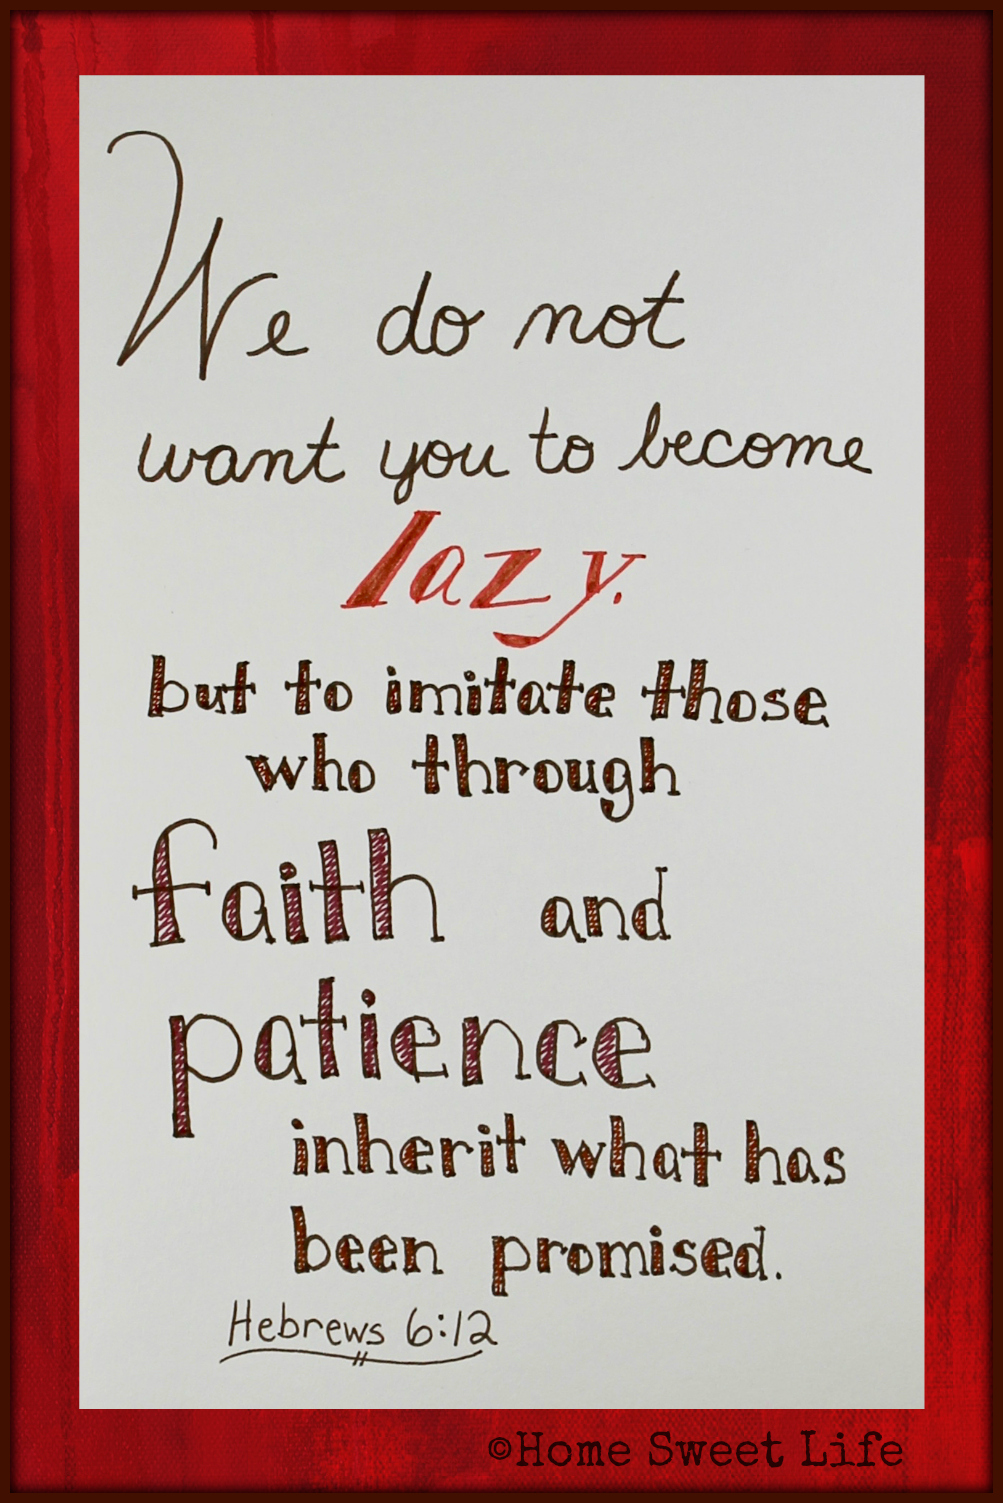 We do not
want you to become
lazy.
but to imitate those
who through
faith and
patience
inherit what has
been promised.
Hebrews 6:12
©Home Sweet Life